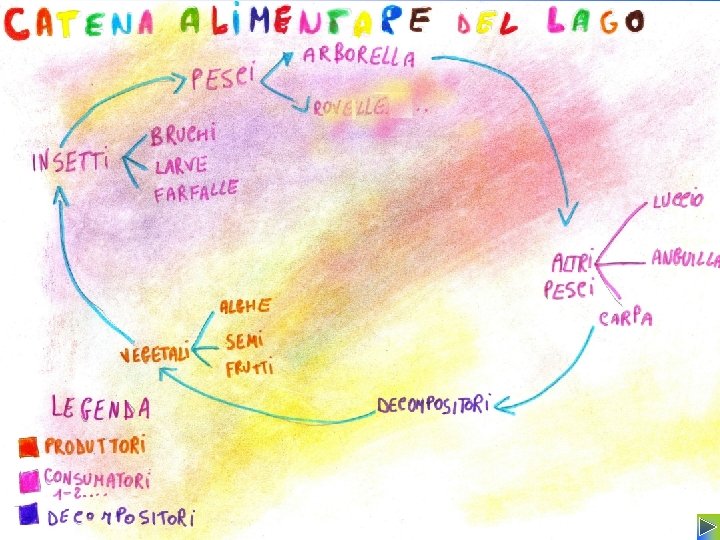 CATENA ALIMENTARE DEL LAGO
PESCI
ARBORELLA
ROVELLE...
INSETTI
BRUCHI
LARVE
FARFALLE
ALTRI
PESCI
LUCCIO
ANGUILLA
CARPA
VEGETALI
ALGHE
SEMI
FRUTTI
DECOMPOSITORI
LEGENDA
PRODUTTORI
CONSUMATORI
1-2....
DECOMPOSITORI